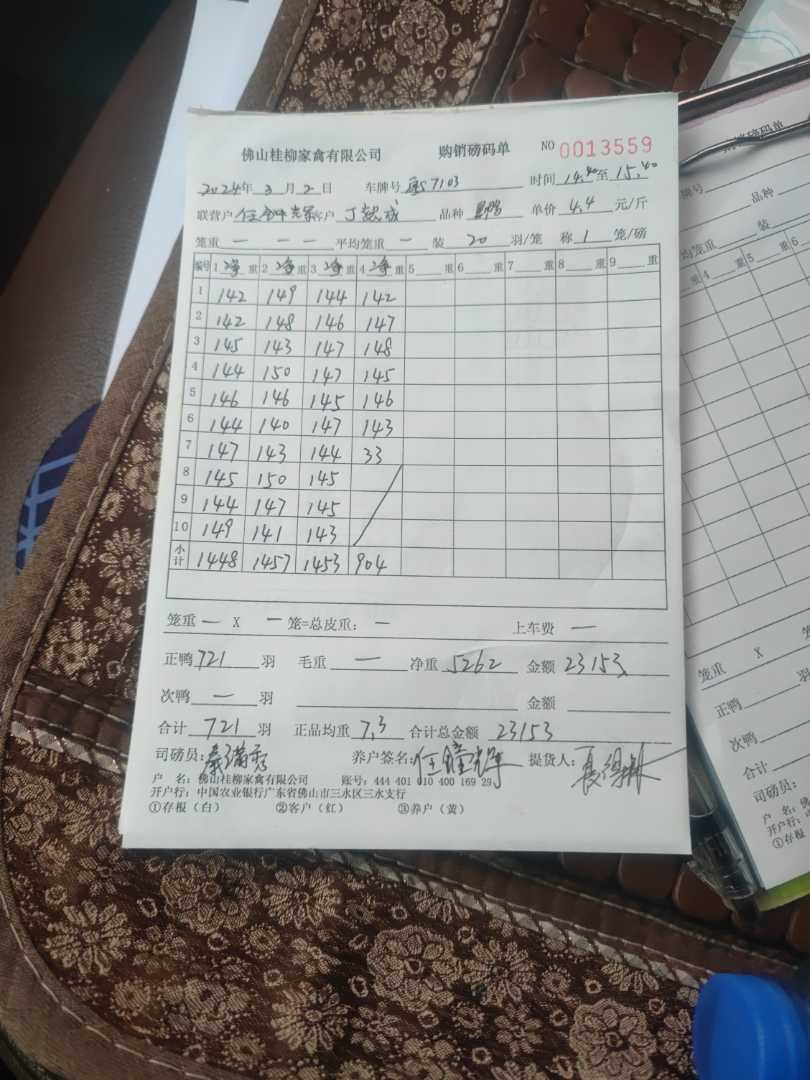 佛山桂柳家禽有限公司 购销磅码单 NO 0013559
2024年3月2日 车牌号 7103 时间 14:40至15:40
联营户 客户 丁 品种 单价 4.4 元/斤
笼重 — — — 平均笼重 — 装 20 羽/笼 称 1 笼/磅
编号 1 净 重 2 净 重 3 净 重 4 净 重 5 重 6 重 7 重 8 重 9 重
1 142 149 144 142
2 142 148 146 147
3 145 143 147 148
4 144 150 147 145
5 146 146 145 146
6 144 140 147 143
7 147 143 144 33
8 145 150 145
9 144 147 145
10 149 141 143
小计 1448 1457 1453 904
笼重 — X — 笼=总皮重: — 上车费 —
正鸭 721 羽 毛重 — 净重 5262 金额 23153
次鸭 — 羽 金额
合计 721 羽 正品均重 7.3 合计总金额 23153
司磅员: 养户签名: 提货人:
户 名: 佛山桂柳家禽有限公司 账号: 444 401 010 400 169 29
开户行: 中国农业银行广东省佛山市三水区三水支行
①存根(白) ②客户(红) ③养户(黄)
购销磅码单
牌号 品种
均笼重 装
重 4 重 5 重 6
笼重 X 笼
正鸭 羽
次鸭
合计
司磅员:
户 名:
开户行:
①存根